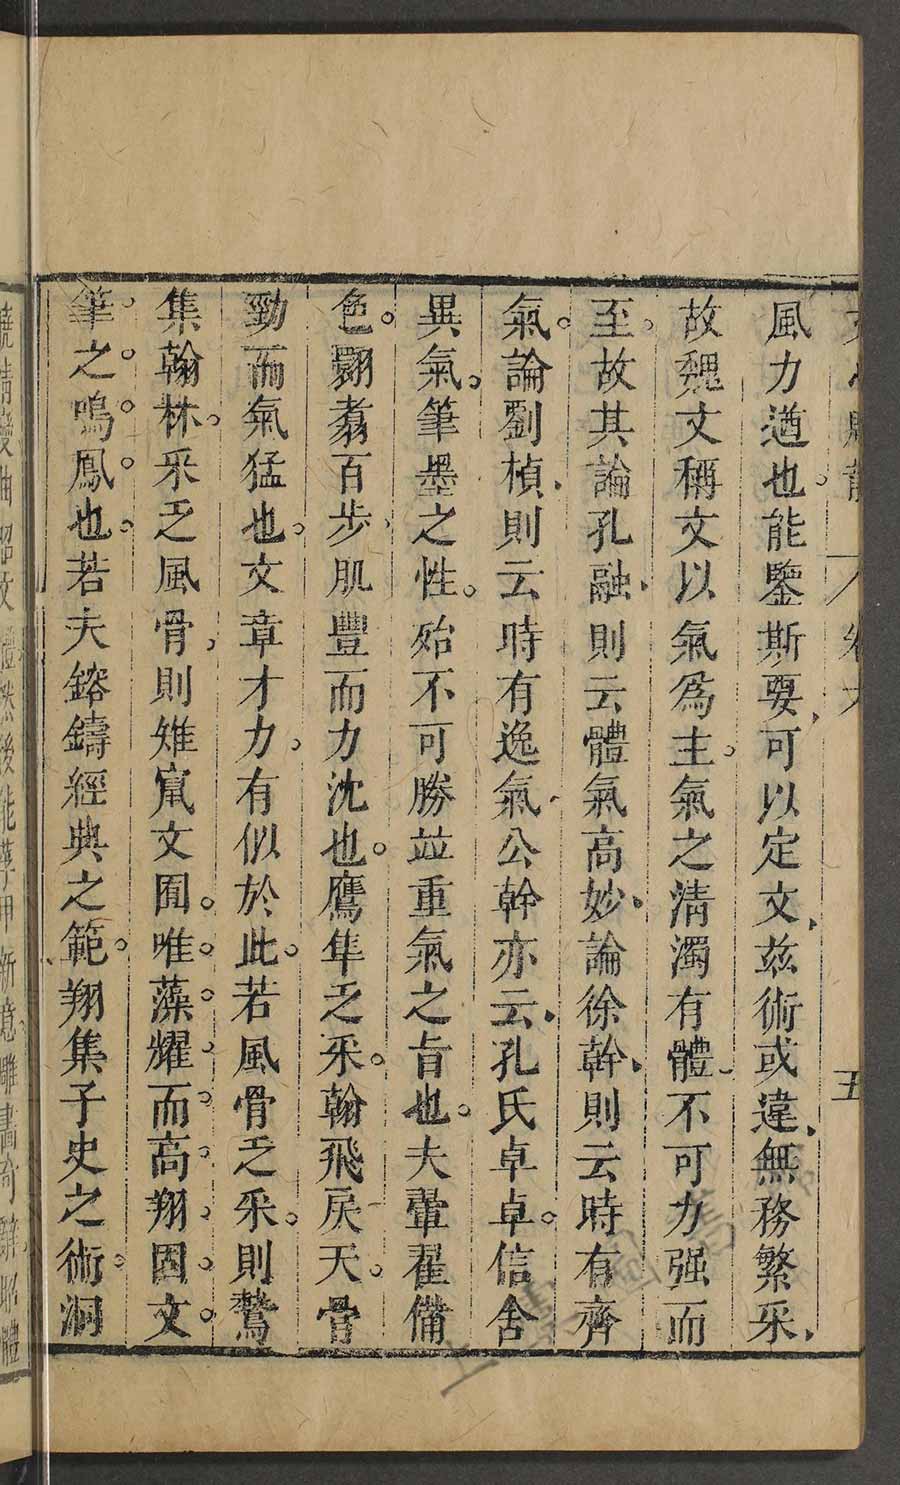 文心雕龍 卷六 五
風力遒也。能鑒斯要、可以定文、茲術或違、無務繁采、
故魏文稱文以氣爲主。氣之清濁有體、不可力强而
至。故其論孔融、則云體氣高妙、論徐幹、則云時有齊
氣。論劉楨、則云時有逸氣、公幹亦云、孔氏卓卓。信含
異氣。筆墨之性。殆不可勝。並重氣之旨也。夫翬翟備
色。翾翥百步、肌豐而力沈也。鷹隼乏采。翰飛戾天。骨
勁而氣猛也。文章才力、有似於此。若風骨乏采。則鷙
集翰林。采乏風骨、則雉竄文囿。唯藻耀而高翔。固文
筆之鳴鳳也。若夫鎔鑄經典之範。翔集子史之術。洞
曉情變曲昭文體然後能孚甲新意雕畫奇辭昭體